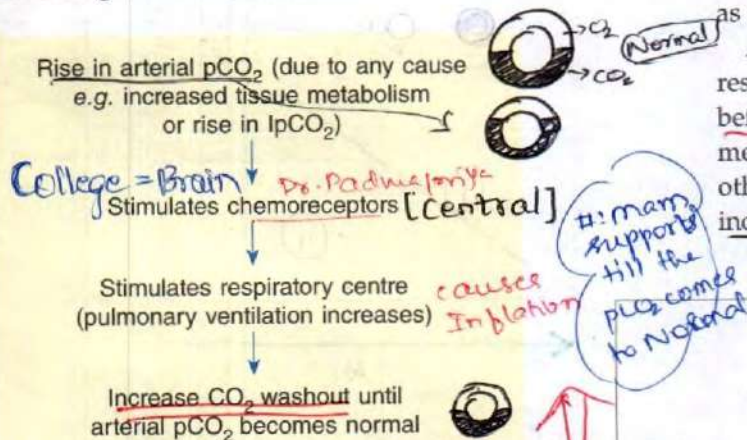 as
→O₂
Normal
→CO₂
Rise in arterial pCO₂ (due to any cause
e.g. increased tissue metabolism
or rise in IpCO₂)
res
bef
me
oth
inc
College = Brain
Dr. Padmapriya
Stimulates chemoreceptors [Central]
#: mam
supports
till the
pCO₂ comes
to Normal
Stimulates respiratory centre
(pulmonary ventilation increases)
causes
Inflation
Increase CO₂ washout until
arterial pCO₂ becomes normal